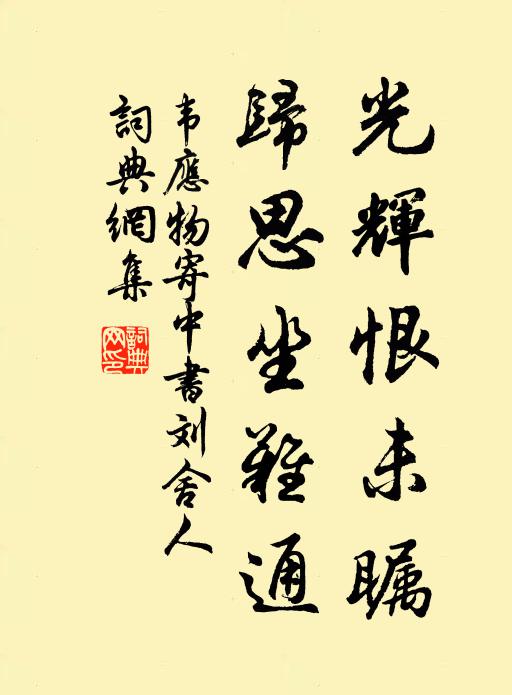 光輝恨未瞩
歸思坐難通
韦應物寄中書刘舍人
詞典網集
詞典网印